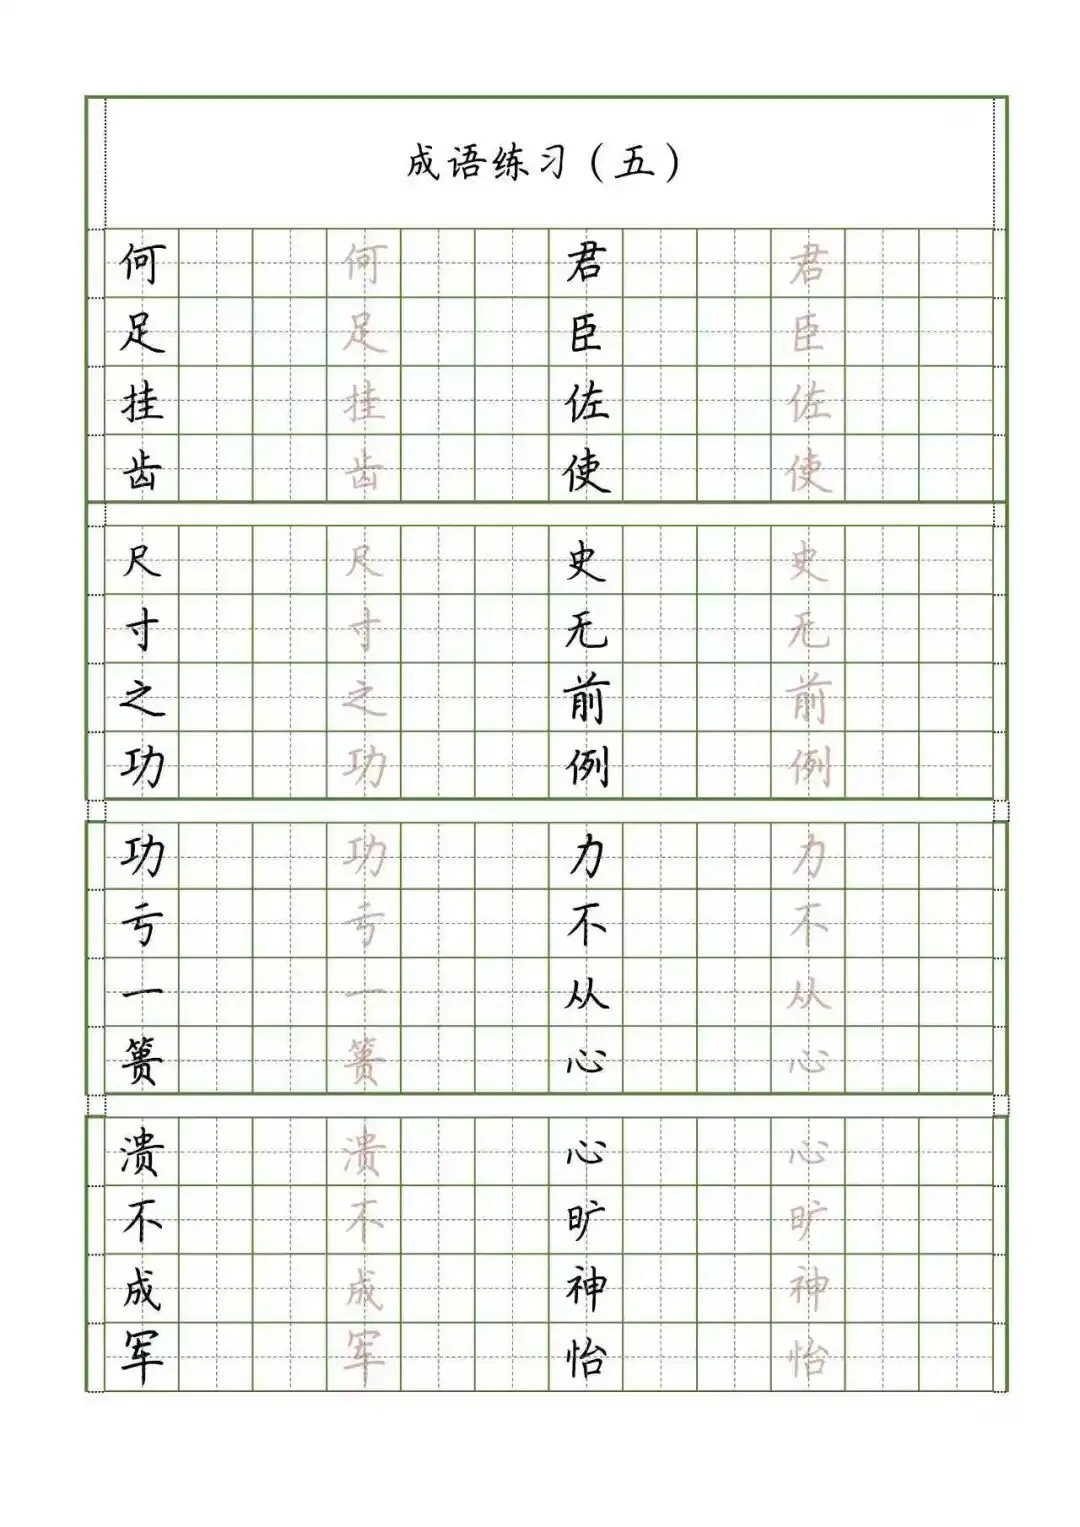 成语练习（五）
何 何 君 君
足 足 臣 臣
挂 挂 佐 佐
齿 齿 使 使
尺 尺 史 史
寸 寸 无 无
之 之 前 前
功 功 例 例
功 功 力 力
亏 亏 不 不
一 一 从 从
篑 篑 心 心
溃 溃 心 心
不 不 旷 旷
成 成 神 神
军 军 怡 怡